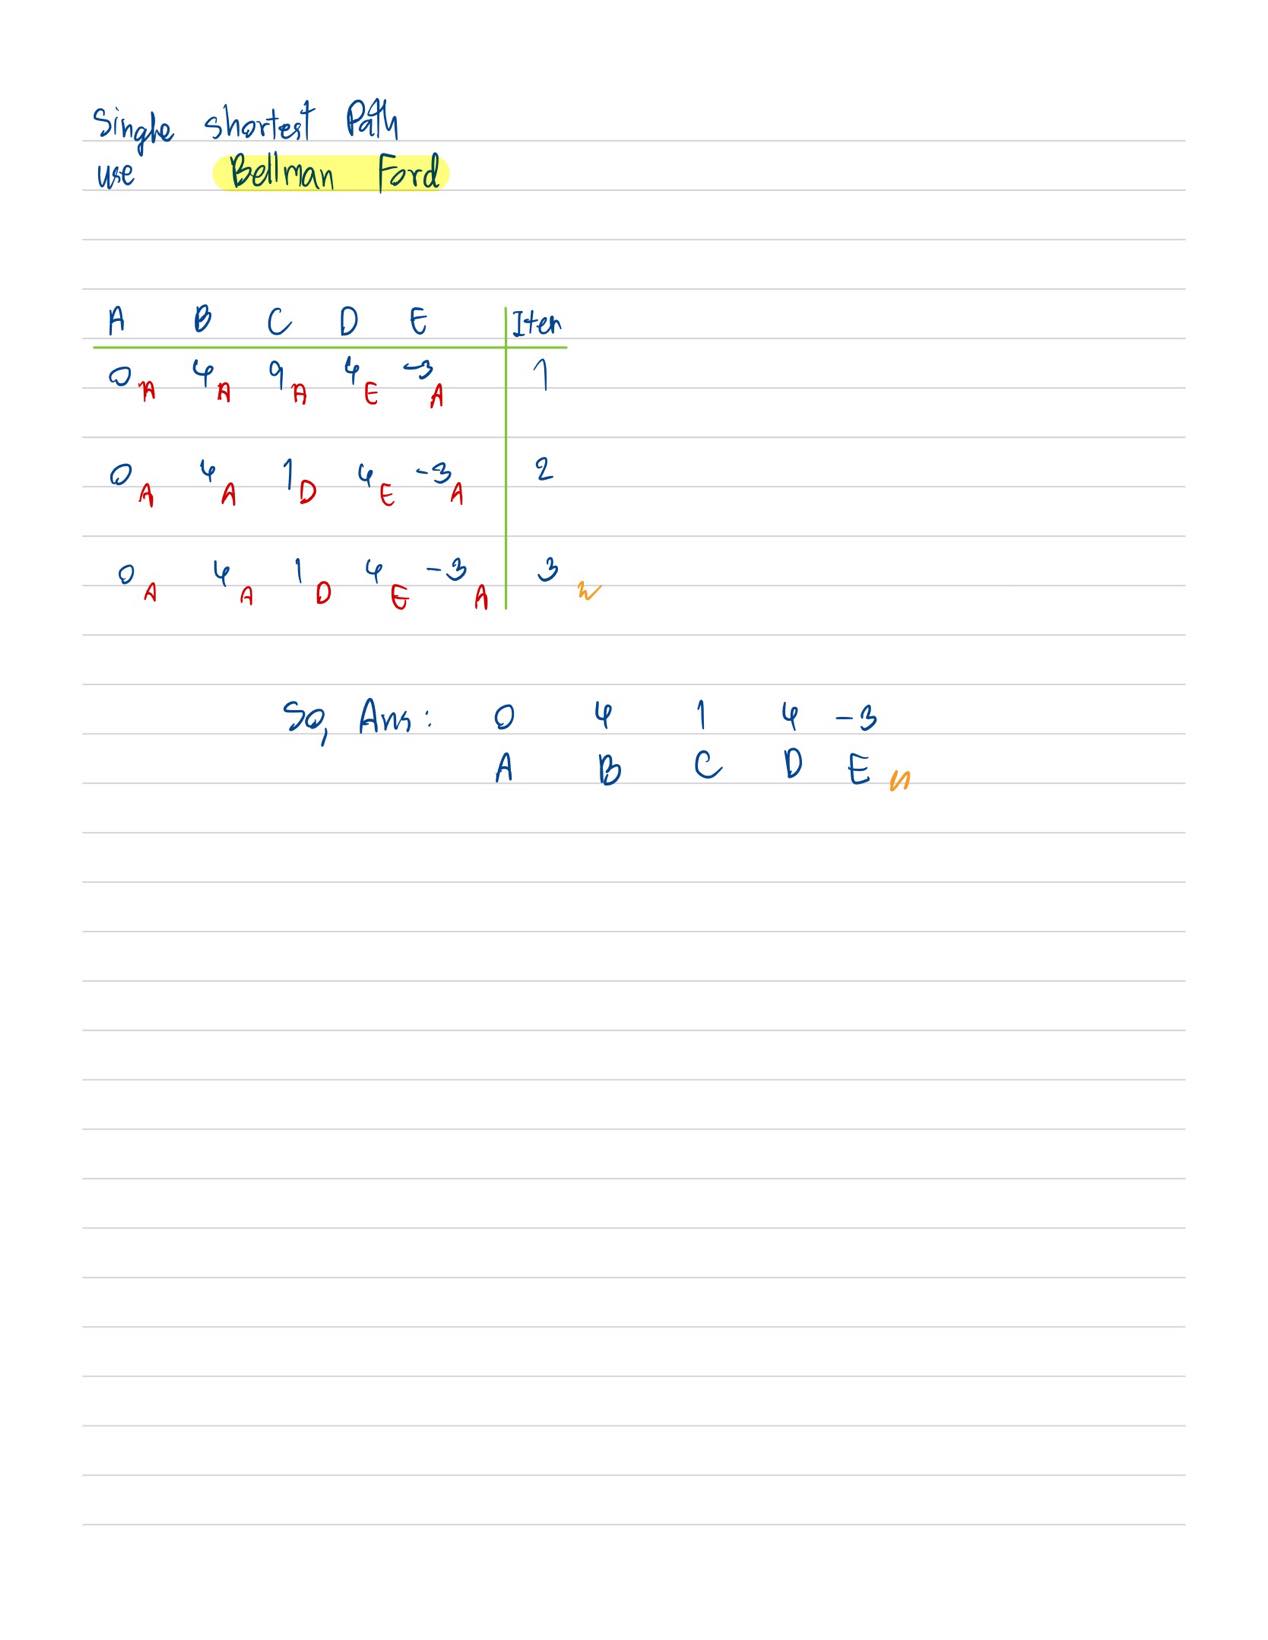 Single shortest Path
use Bellman Ford
A B C D E Iter
0 A 4 A 9 A 4 E -3 A 1
0 A 4 A 1 D 4 E -3 A 2
0 A 4 A 1 D 4 E -3 A 3
So, Ans: 0 4 1 4 -3
A B C D E